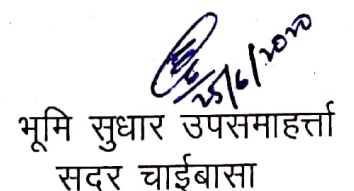 25/6/2020
भूमि सुधार उपसमाहर्त्ता
सदर चाईबासा